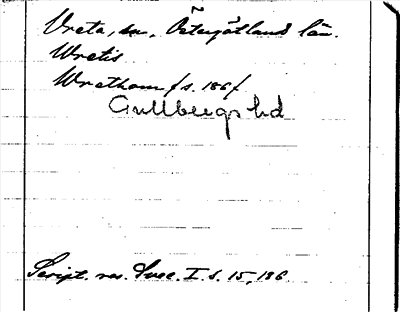 Vreta, sn, Östergötland län.
Wretis
Wrethom /s. 186/
Gullbergs hd
Script. rer. Svec. I. s. 15, 186